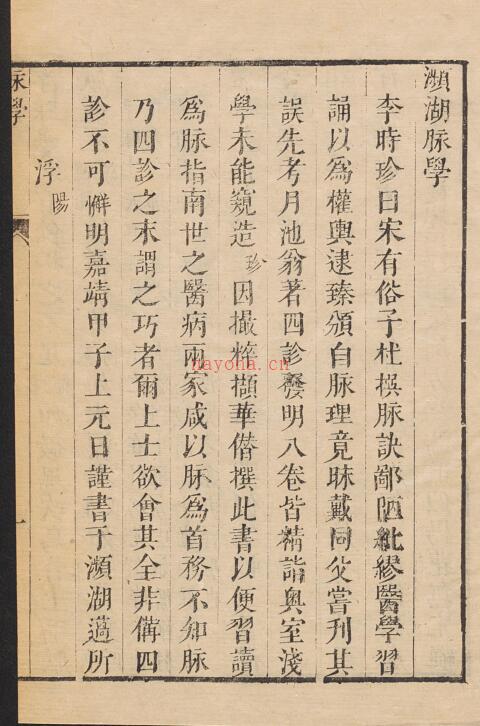 瀕湖脉學
李時珍曰宋有俗子杜撰脉訣鄙陋紕繆醫學習
誦以爲權輿逮臻頒白脉理竟昧戴同父嘗刊其
誤先考月池翁著四診發明八卷皆精詣奥室淺
學未能窺造珍因撮粹擷華僭撰此書以便習讀
爲脉指南世之醫病兩家咸以脉爲首務不知脉
乃四診之末謂之巧者爾上士欲會其全非備四
診不可明嘉靖甲子上元日謹書于瀕湖薖所
浮陽
脉學
一
nayona.cn